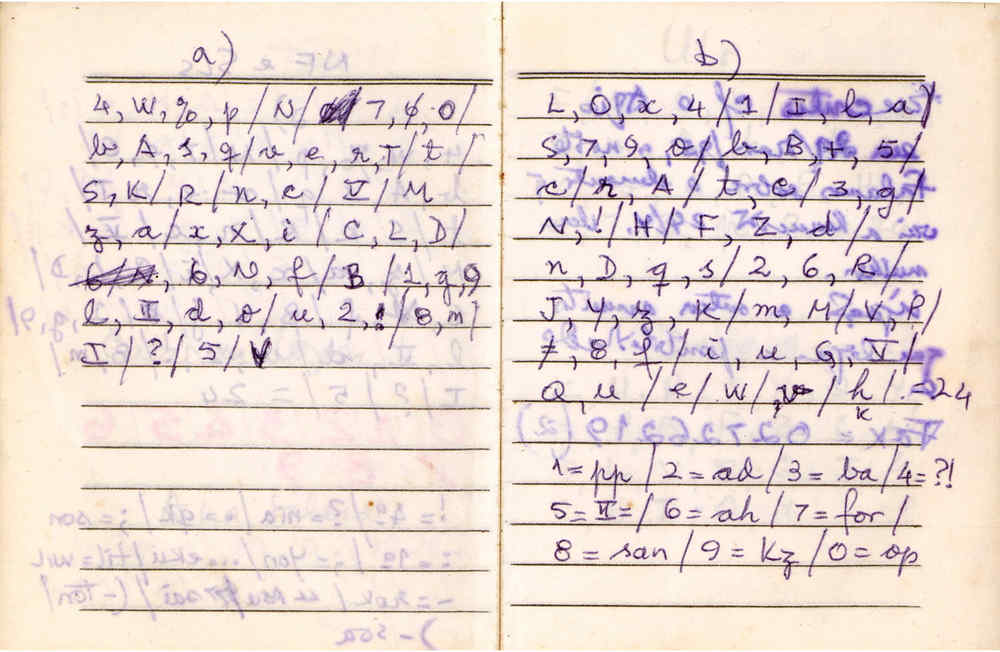 a)
4, W, %, p / N / 7, 6, 0 /
b, A, s, q / v, e, r, T / t /
S, K / R / n, c / V / M
z, a / x, X, i / C, L, D /
b, N, f / B / 1, g, 9
l, II, d, o / u, 2, ! / 8, m /
I / ? / 5 / V
b)
L, O, x, 4 / 1 / I, l, a /
S, 7, 9, o / b, B, +, 5 /
c / r, A / t, C / 3, g /
N, ! / H / F, Z, d /
n, D, q, s / 2, 6, R /
J, Y, z, K / m, M / V, P /
≠, 8, f / i, u, G, V /
Q, u / e / W / v / h / = 24
k
1 = pp / 2 = ad / 3 = ba / 4 = ?!
5 = II = / 6 = ah / 7 = for /
8 = san / 9 = kz / 0 = op